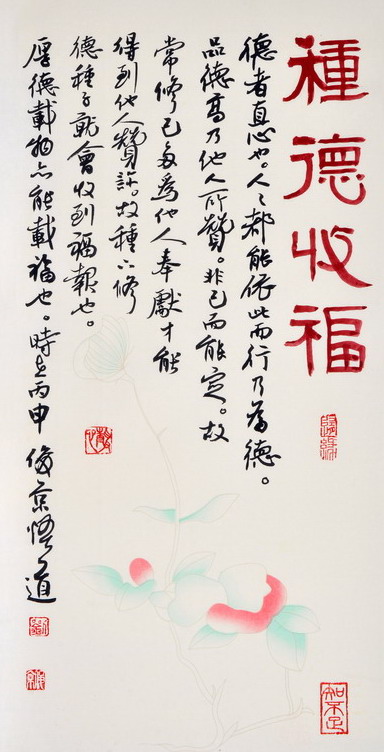 種德收福
德者直心也。人人都能依此而行乃為德。
品德高乃他人所贊。非己而能定。故
常修己多為他人奉獻才能
得到他人贊許。故種下修
德種子就會收到福報也。
厚德載物亦能載福也。時在丙申俊京悟道
知不足